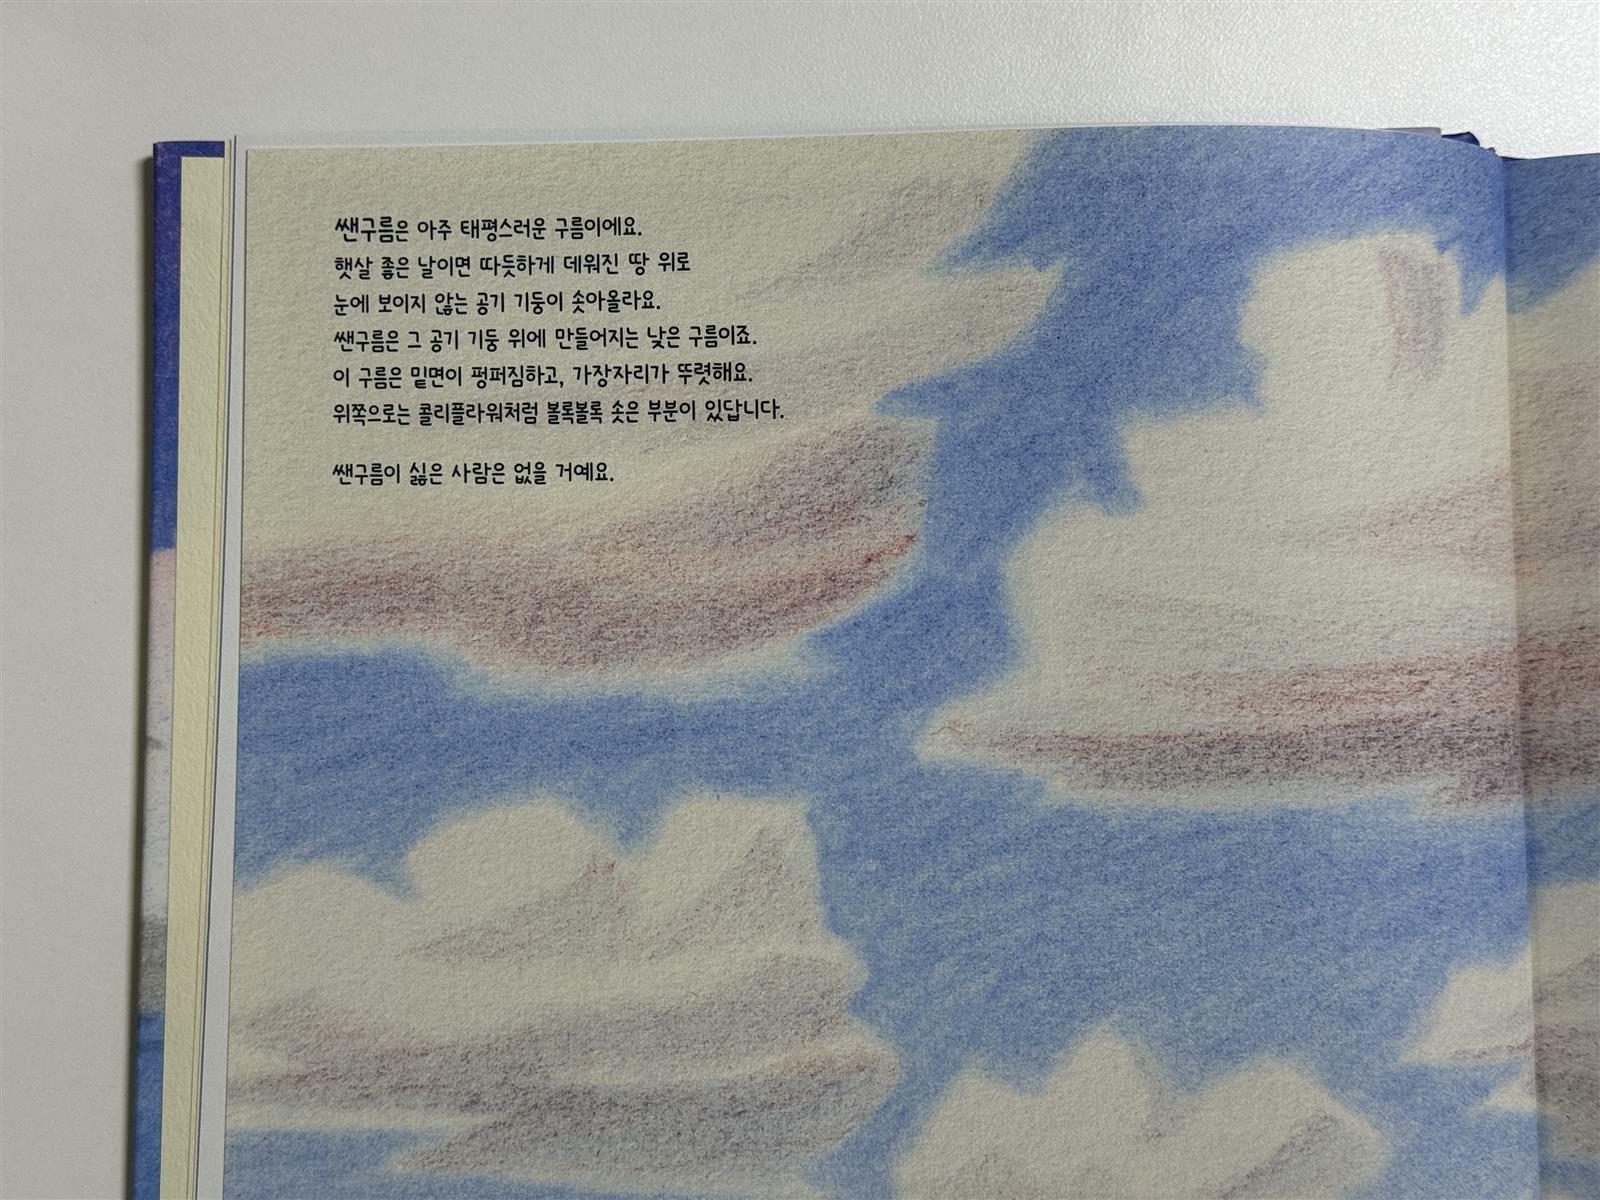 쌘구름은 아주 태평스러운 구름이에요.
햇살 좋은 날이면 따듯하게 데워진 땅 위로
눈에 보이지 않는 공기 기둥이 솟아올라요.
쌘구름은 그 공기 기둥 위에 만들어지는 낮은 구름이죠.
이 구름은 밑면이 펑퍼짐하고, 가장자리가 뚜렷해요.
위쪽으로는 콜리플라워처럼 볼록볼록 솟은 부분이 있답니다.
쌘구름이 싫은 사람은 없을 거예요.